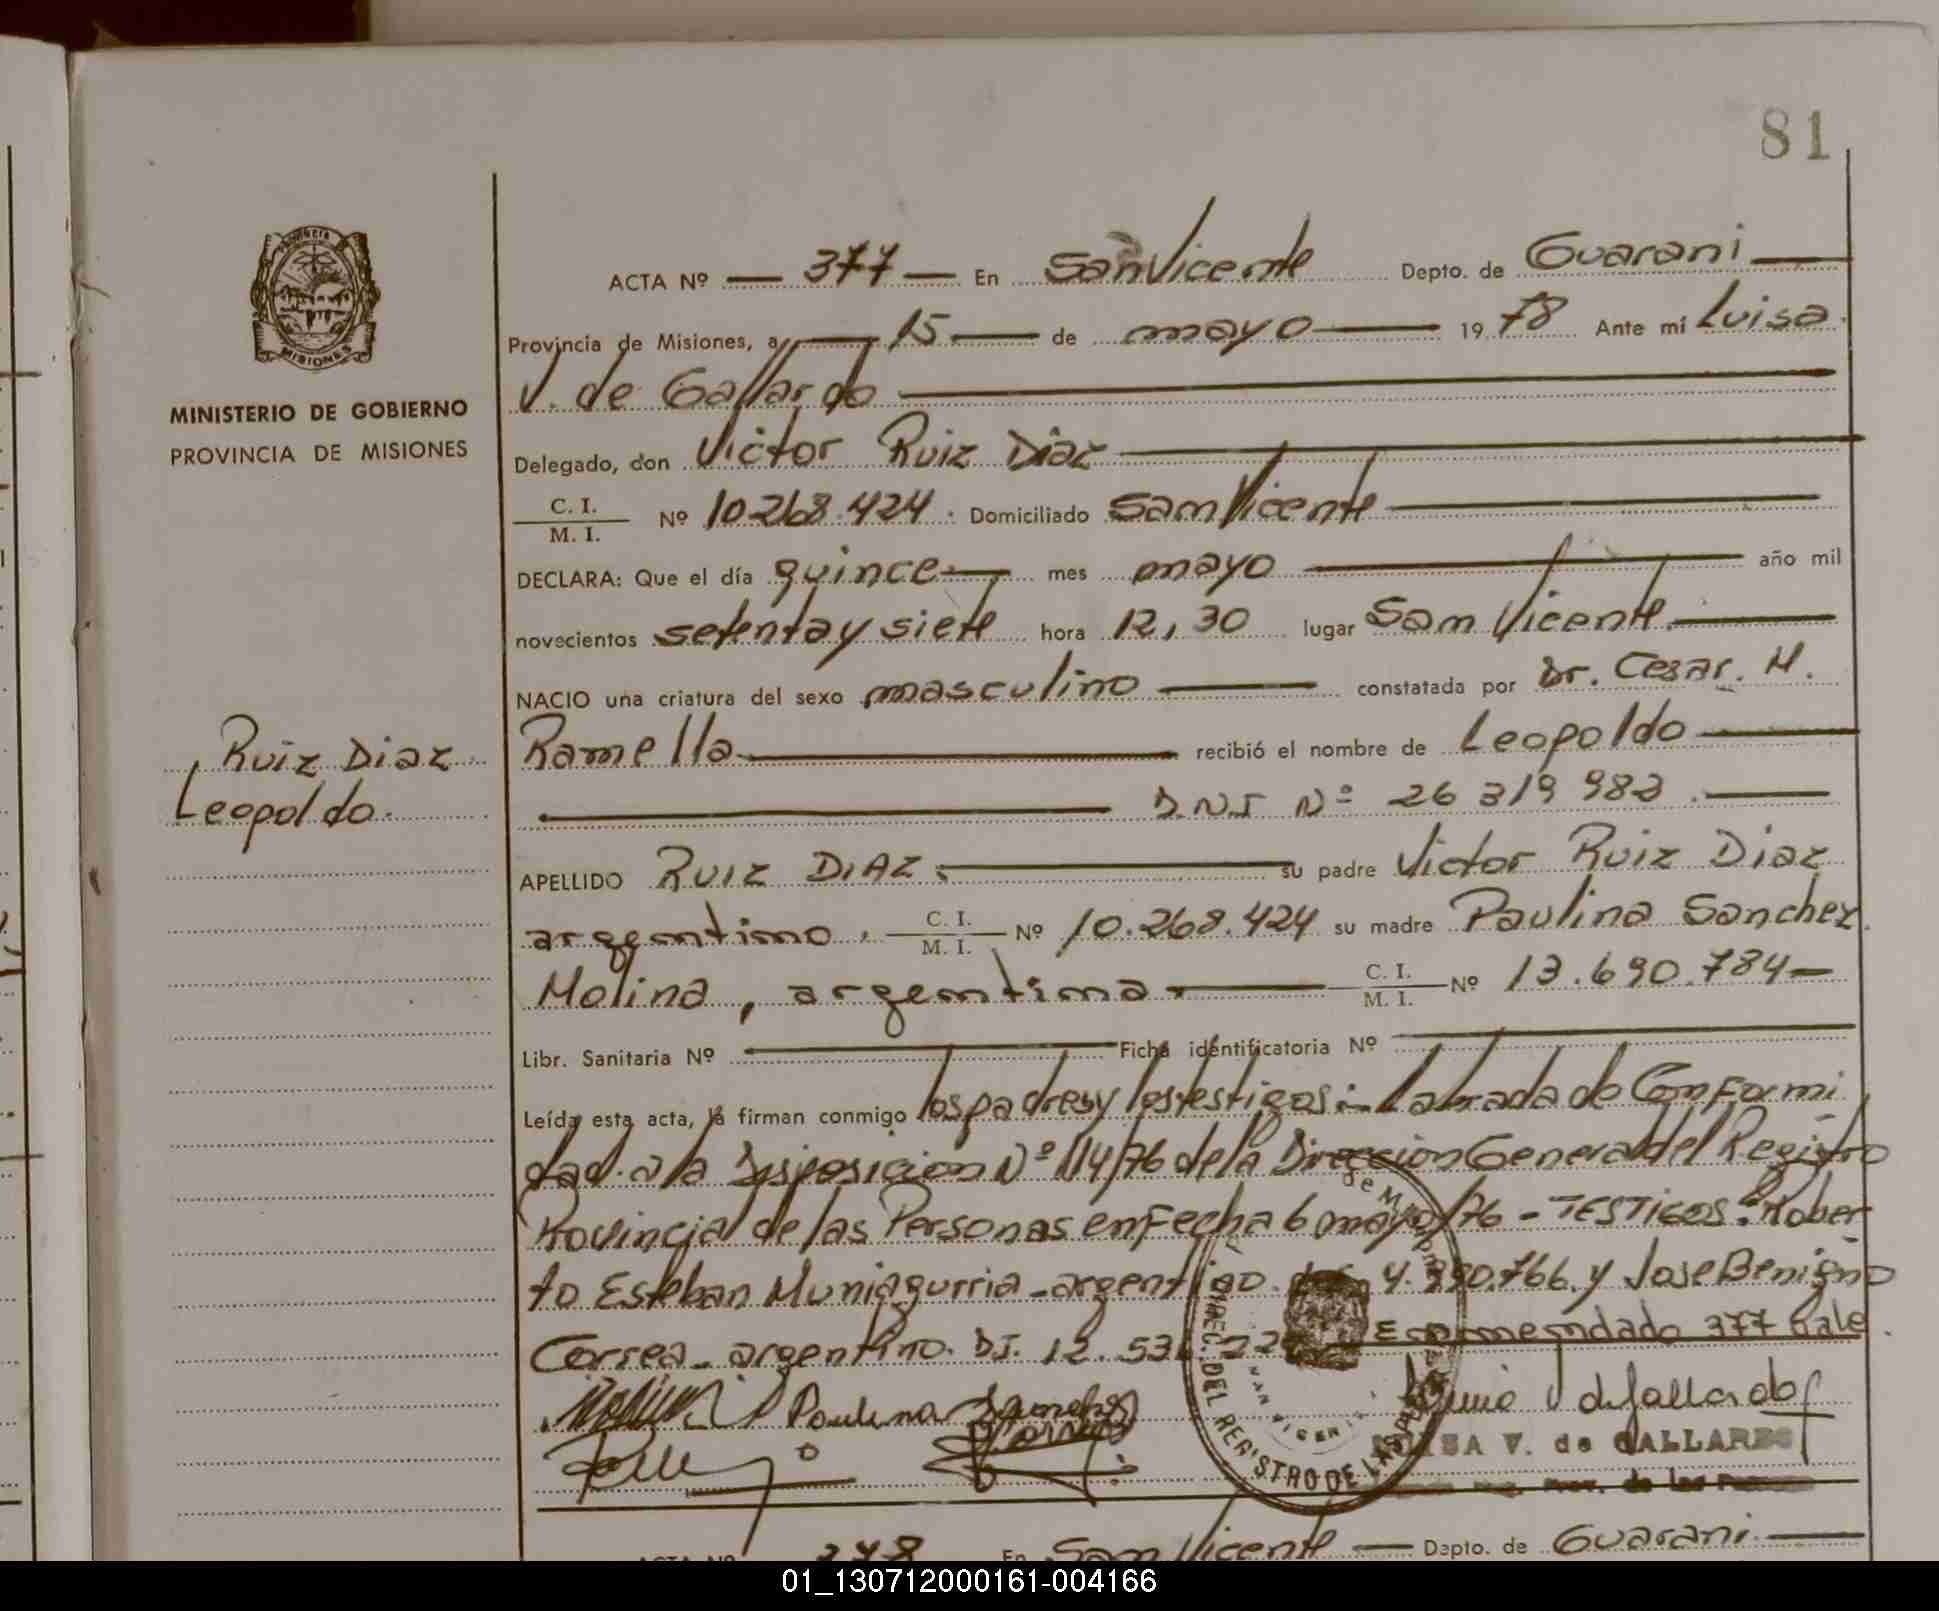 81
PROVINCIA
MISIONES
MINISTERIO DE GOBIERNO
PROVINCIA DE MISIONES
Ruiz Diaz
Leopoldo.
ACTA Nº 377 En San Vicente Depto. de Guarani
Provincia de Misiones, a 15 de mayo 1978 Ante mí Luisa
V. de Gallardo
Delegado, don Victor Ruiz Diaz
C. I. / M. I. Nº 10.268.424. Domiciliado San Vicente
DECLARA: Que el día quince mes mayo año mil
novecientos setenta y siete hora 12,30 lugar San Vicente
NACIO una criatura del sexo masculino constatada por Dr. Cesar. M.
Ramella recibió el nombre de Leopoldo
D.N.I Nº 26 319 983.
APELLIDO RUIZ DIAZ su padre Victor Ruiz Diaz
argentino, C. I. / M. I. Nº 10.268.424 su madre Paulina Sanchez
Molina, argentina C. I. / M. I. Nº 13.690.784
Libr. Sanitaria Nº Ficha identificatoria Nº
Leída esta acta, la firman conmigo los padres y los testigos: Labrada de Conformi
dad a la Disposicion Nº 114/76 de la Direccion General del Registro
Provincial de las Personas en Fecha 6 mayo/76 - TESTIGOS: Rober
to Esteban Muniagurria - argentino. 4. 766. y Jose Benigno
Correa - argentino. DI. 12. Enmendado 377 Vale.
Paulina Sanchez
Luisa V de Gallardo
LUISA V. de GALLARDO
DIREC. DEL REGISTRO DE LAS
ACTA Nº 378 En San Vicente Depto. de Guarani
01_130712000161-004166